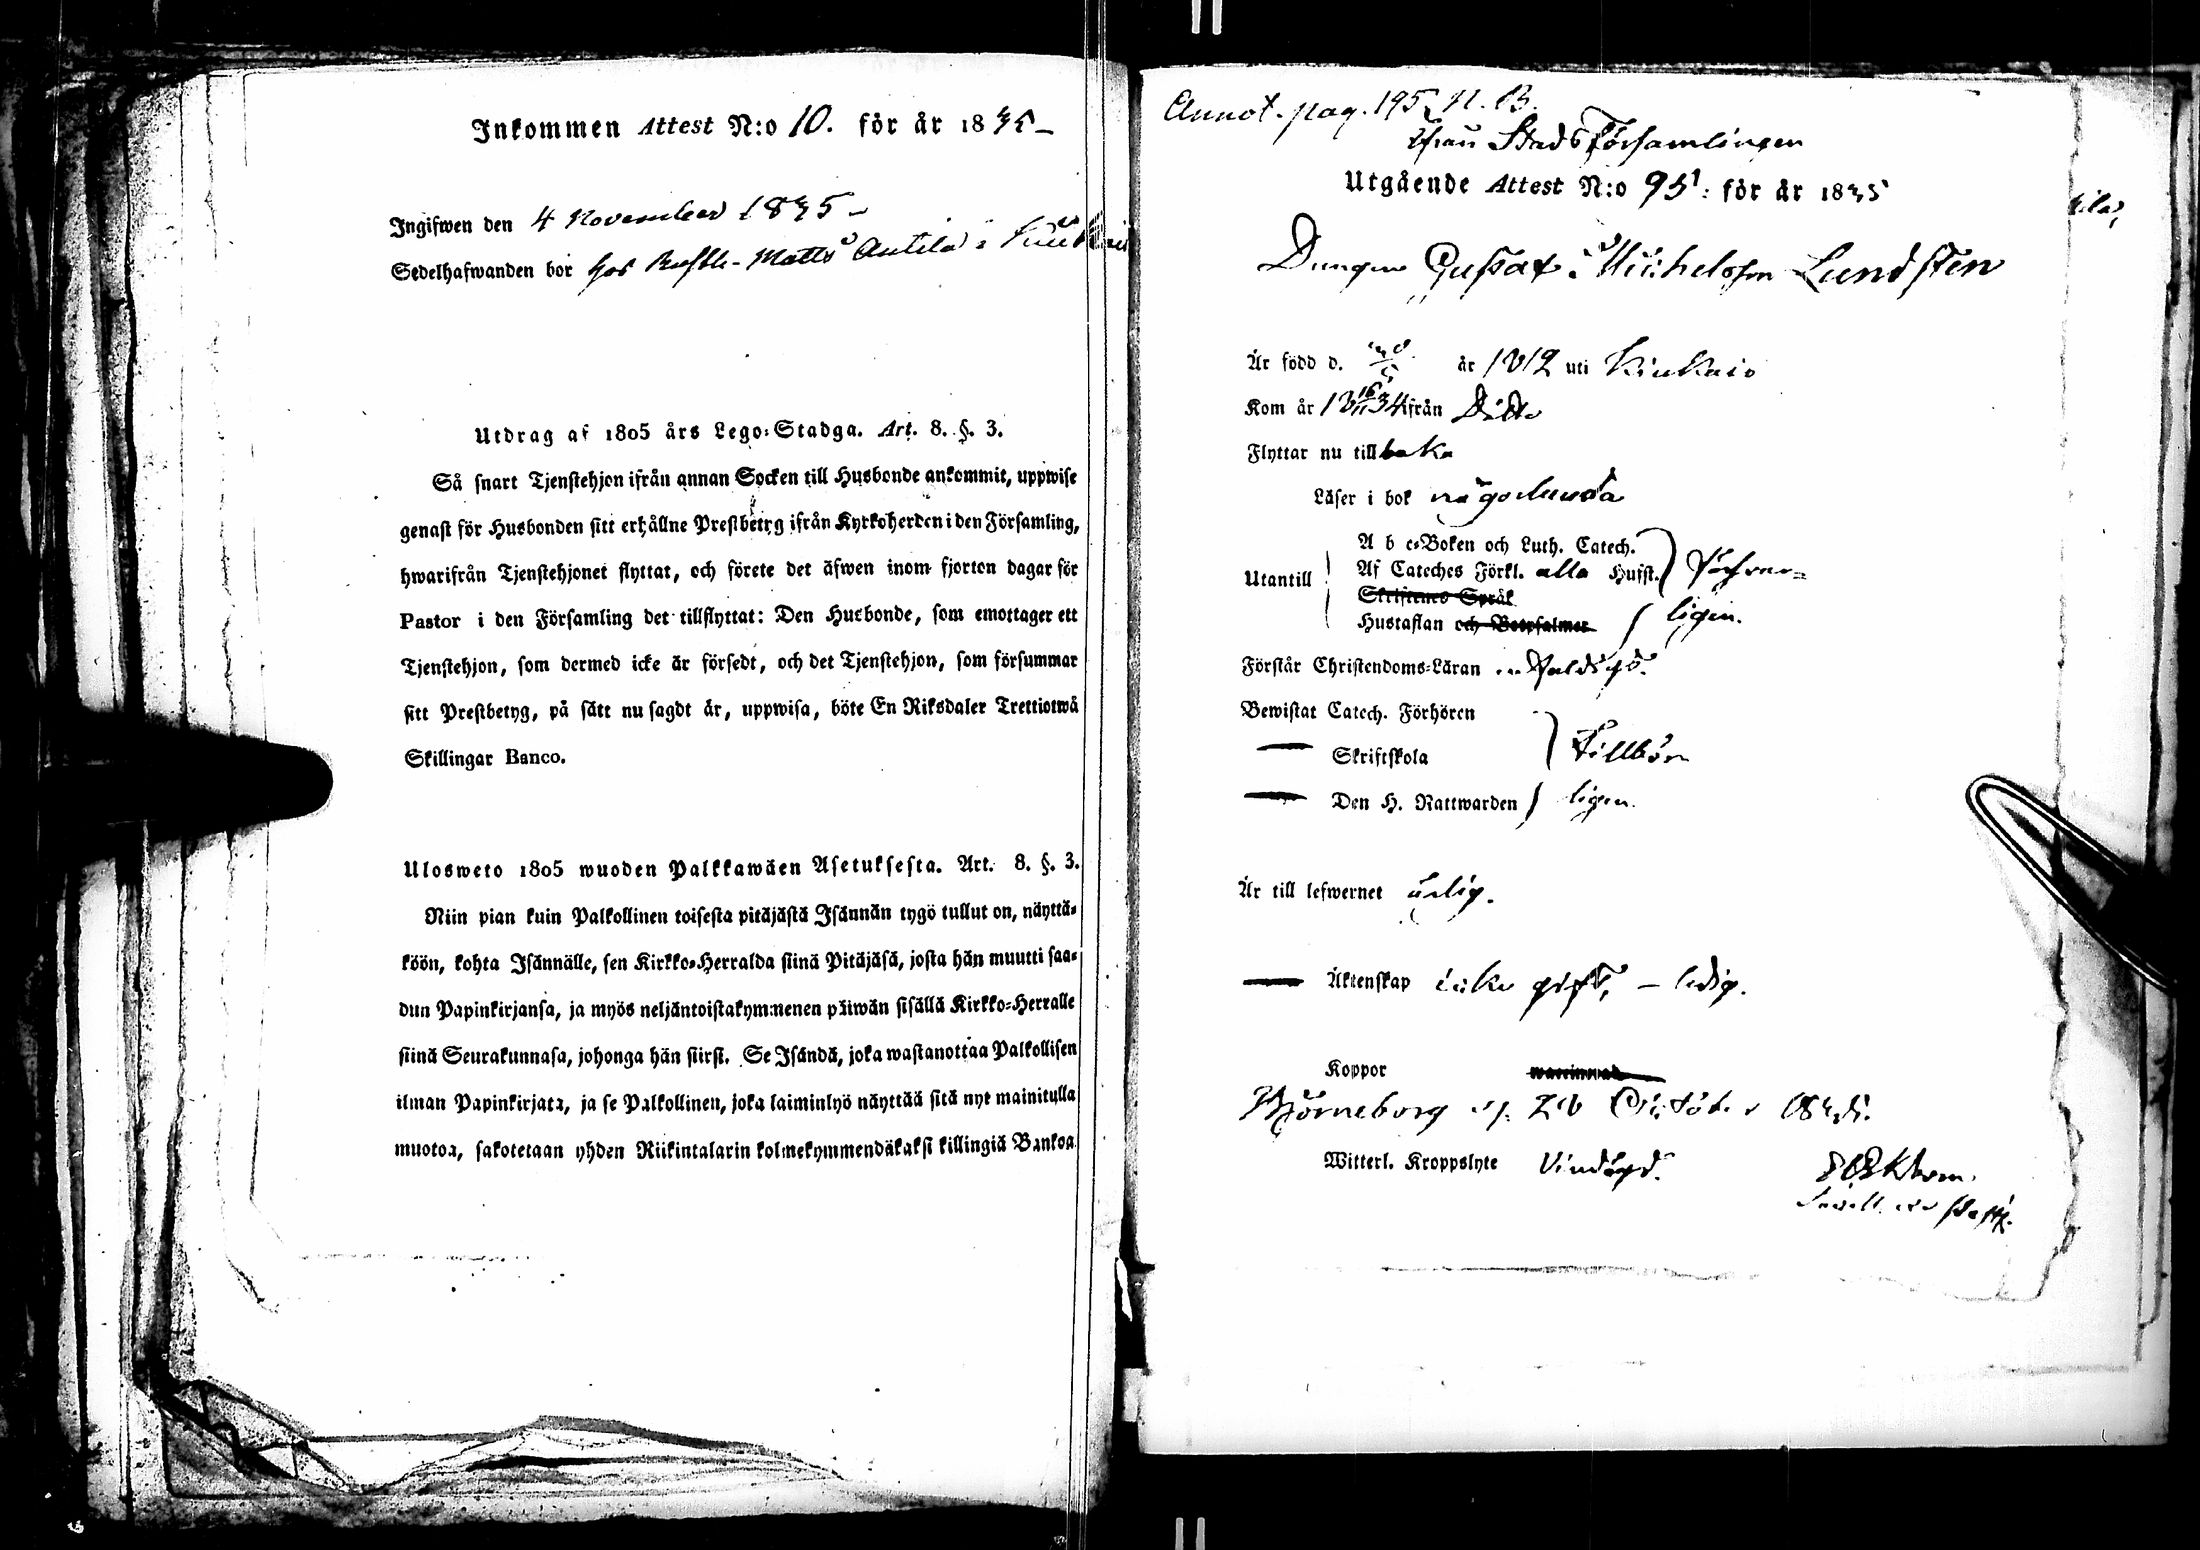 Inkommen Attest N:o 10. för år 1835 –
Ingifwen den 4 November 1835 –
Sedelhafwanden bor hos Matts Antila i
Utdrag af 1805 års Lego-Stadga. Art. 8. §. 3.
Så snart Tjenstehjon ifrån annan Socken till Husbonde ankommit, uppwise
genast för Husbonden sitt erhållne Prestbetyg ifrån Kyrkoherden i den Församling,
hwarifrån Tjenstehjonet flyttat, och förete det äfwen inom fjorton dagar för
Pastor i den Församling det tillflyttat: Den Husbonde, som emottager ett
Tjenstehjon, som dermed icke är försedt, och det Tjenstehjon, som försummar
sitt Prestbetyg, på sätt nu sagdt är, uppwisa, böte En Riksdaler Trettiotwå
Skillingar Banco.
Ulosweto 1805 wuoden Palkkawäen Asetuksesta. Art. 8. §. 3.
Niin pian kuin Palkollinen toisesta pitäjästä Isännän tygö tullut on, näyttä-
köön, kohta Isännälle, sen Kirkko-Herralda siinä Pitäjäsä, josta hän muutti saa-
dun Papinkirjansa, ja myös neljäntoistakymmenen päiwän sisällä Kirkko-Herralle
siinä Seurakunnasa, johonga hän siirsi. Se Isändä, joka wastanottaa Palkollisen
ilman Papinkirjata, ja se Palkollinen, joka laiminlyö näyttää sitä nyt mainitulla
muotoa, sakotetaan yhden Riikintalarin kolmekymmendäkaksi killingiä Bankoa
Annot. pag. 195 N. B.
ifrån StadsFörsamlingen
Utgående Attest N:o 95: för år 1835
Drengen Gustaf Michelsson Lundsten
Är född d. år 1812 uti Kiukais
Kom år 1834 ifrån Dito
Flyttar nu tillbaka
Läser i bok någorlunda
A b c-Boken och Luth. Catech.
Utantill Af Cateches Förkl. alla Hufst. försvar-
Skriftenes Språk
Hustaflan och Botpsalmer ligen.
Förstår Christendoms-Läran enfaldigt.
Bewistat Catech. Förhören
— Skriftskola Tillbör
— Den H. Nattwarden ligen.
Är till lefwernet ärlig.
— Äktenskap icke gift, – ledig.
Koppor
Björneborg d. 28 October 1835.
Witterl. Kroppslyte Vindögd.